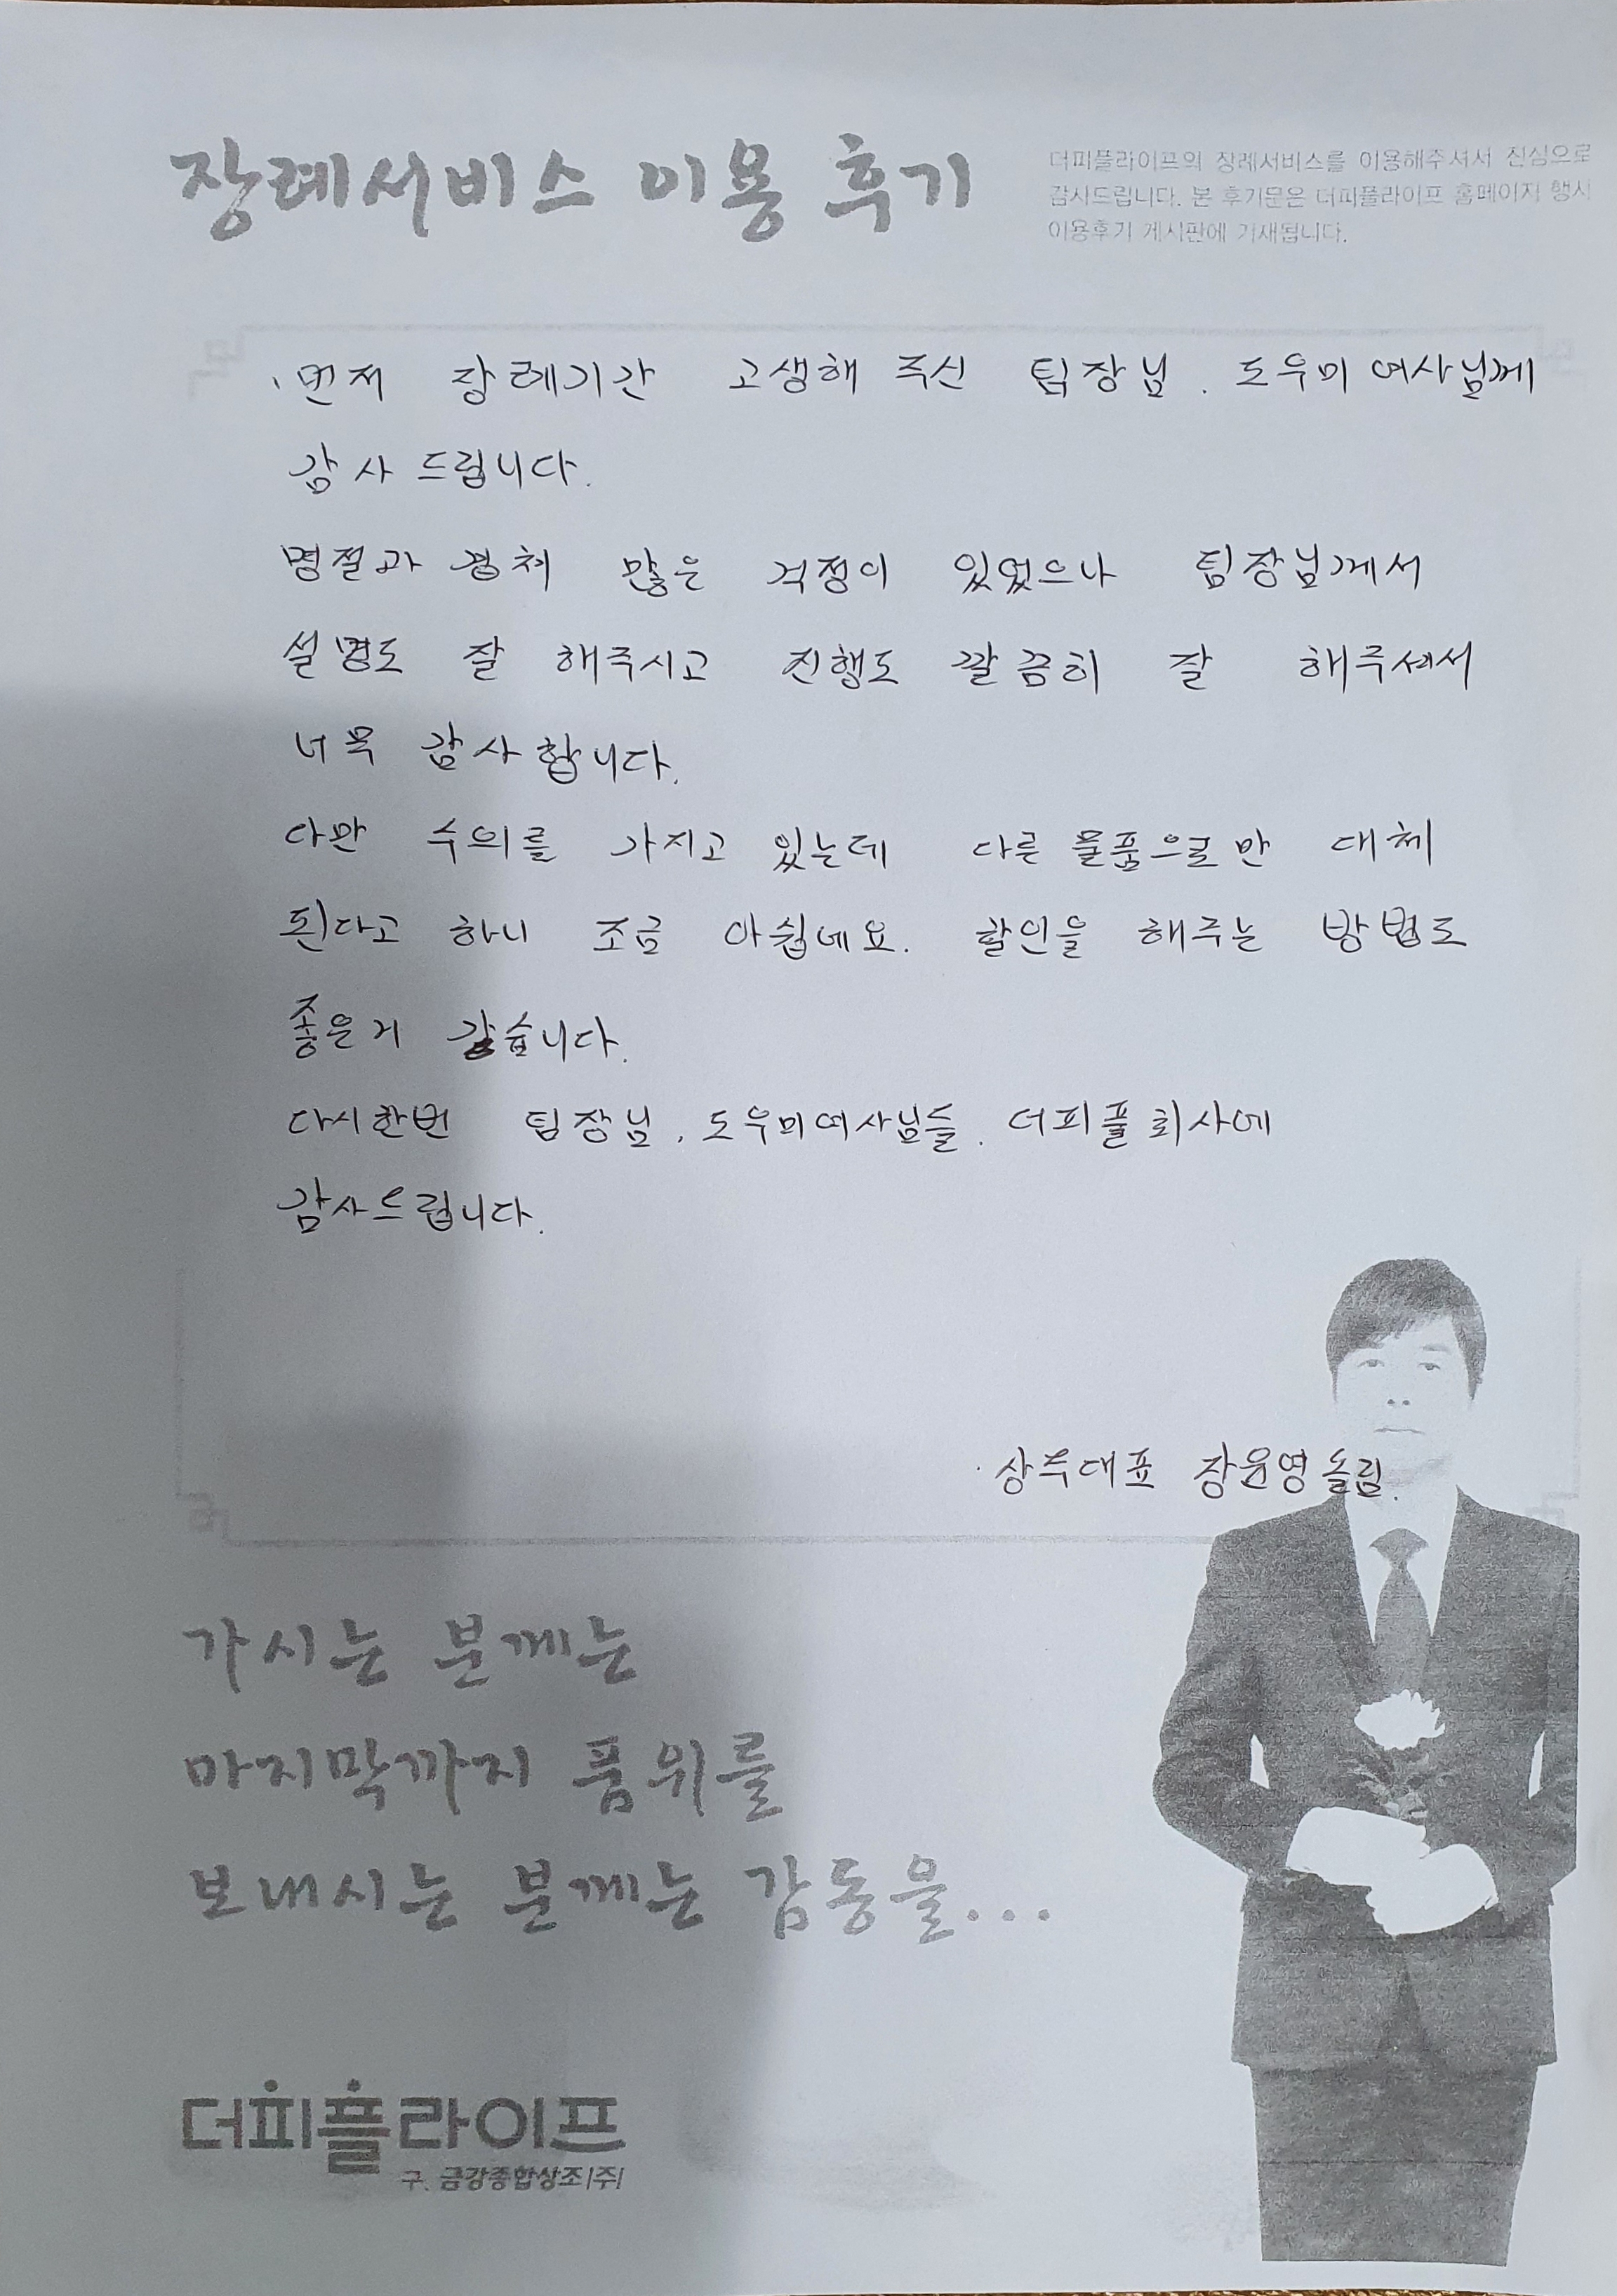 장례서비스 이용 후기
더피플라이프의 장례서비스를 이용해주셔서 진심으로
감사드립니다. 본 후기문은 더피플라이프 홈페이지 행사
이용후기 게시판에 기재됩니다.
먼저 장례기간 고생해 주신 팀장님, 도우미 여사님께
감사드립니다.
명절과 겹쳐 많은 걱정이 있었으나 팀장님께서
설명도 잘 해주시고 진행도 깔끔히 잘 해주셔서
너무 감사합니다.
다만 수의를 가지고 있는데 다른 물품으로만 대체
된다고 하니 조금 아쉽네요. 할인을 해주는 방법도
좋은거 같습니다.
다시한번 팀장님, 도우미여사님들, 더피플회사에
감사드립니다.
상주대표 장윤영 올림.
가시는 분께는
마지막까지 품위를
보내시는 분께는 감동을...
더피플라이프
구. 금강종합상조(주)